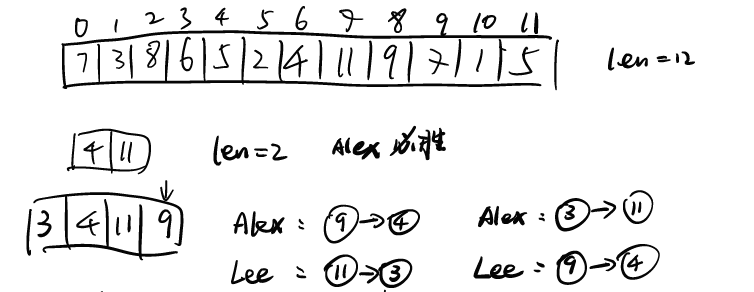 0 1 2 3 4 5 6 7 8 9 10 11
7 3 8 6 5 2 4 11 9 7 1 5 len=12
4 11 len=2 Alex 必胜
3 4 11 9 Alex : 9 → 4 Alex : 3 → 11
Lee = 11 → 3 Lee = 9 → 4